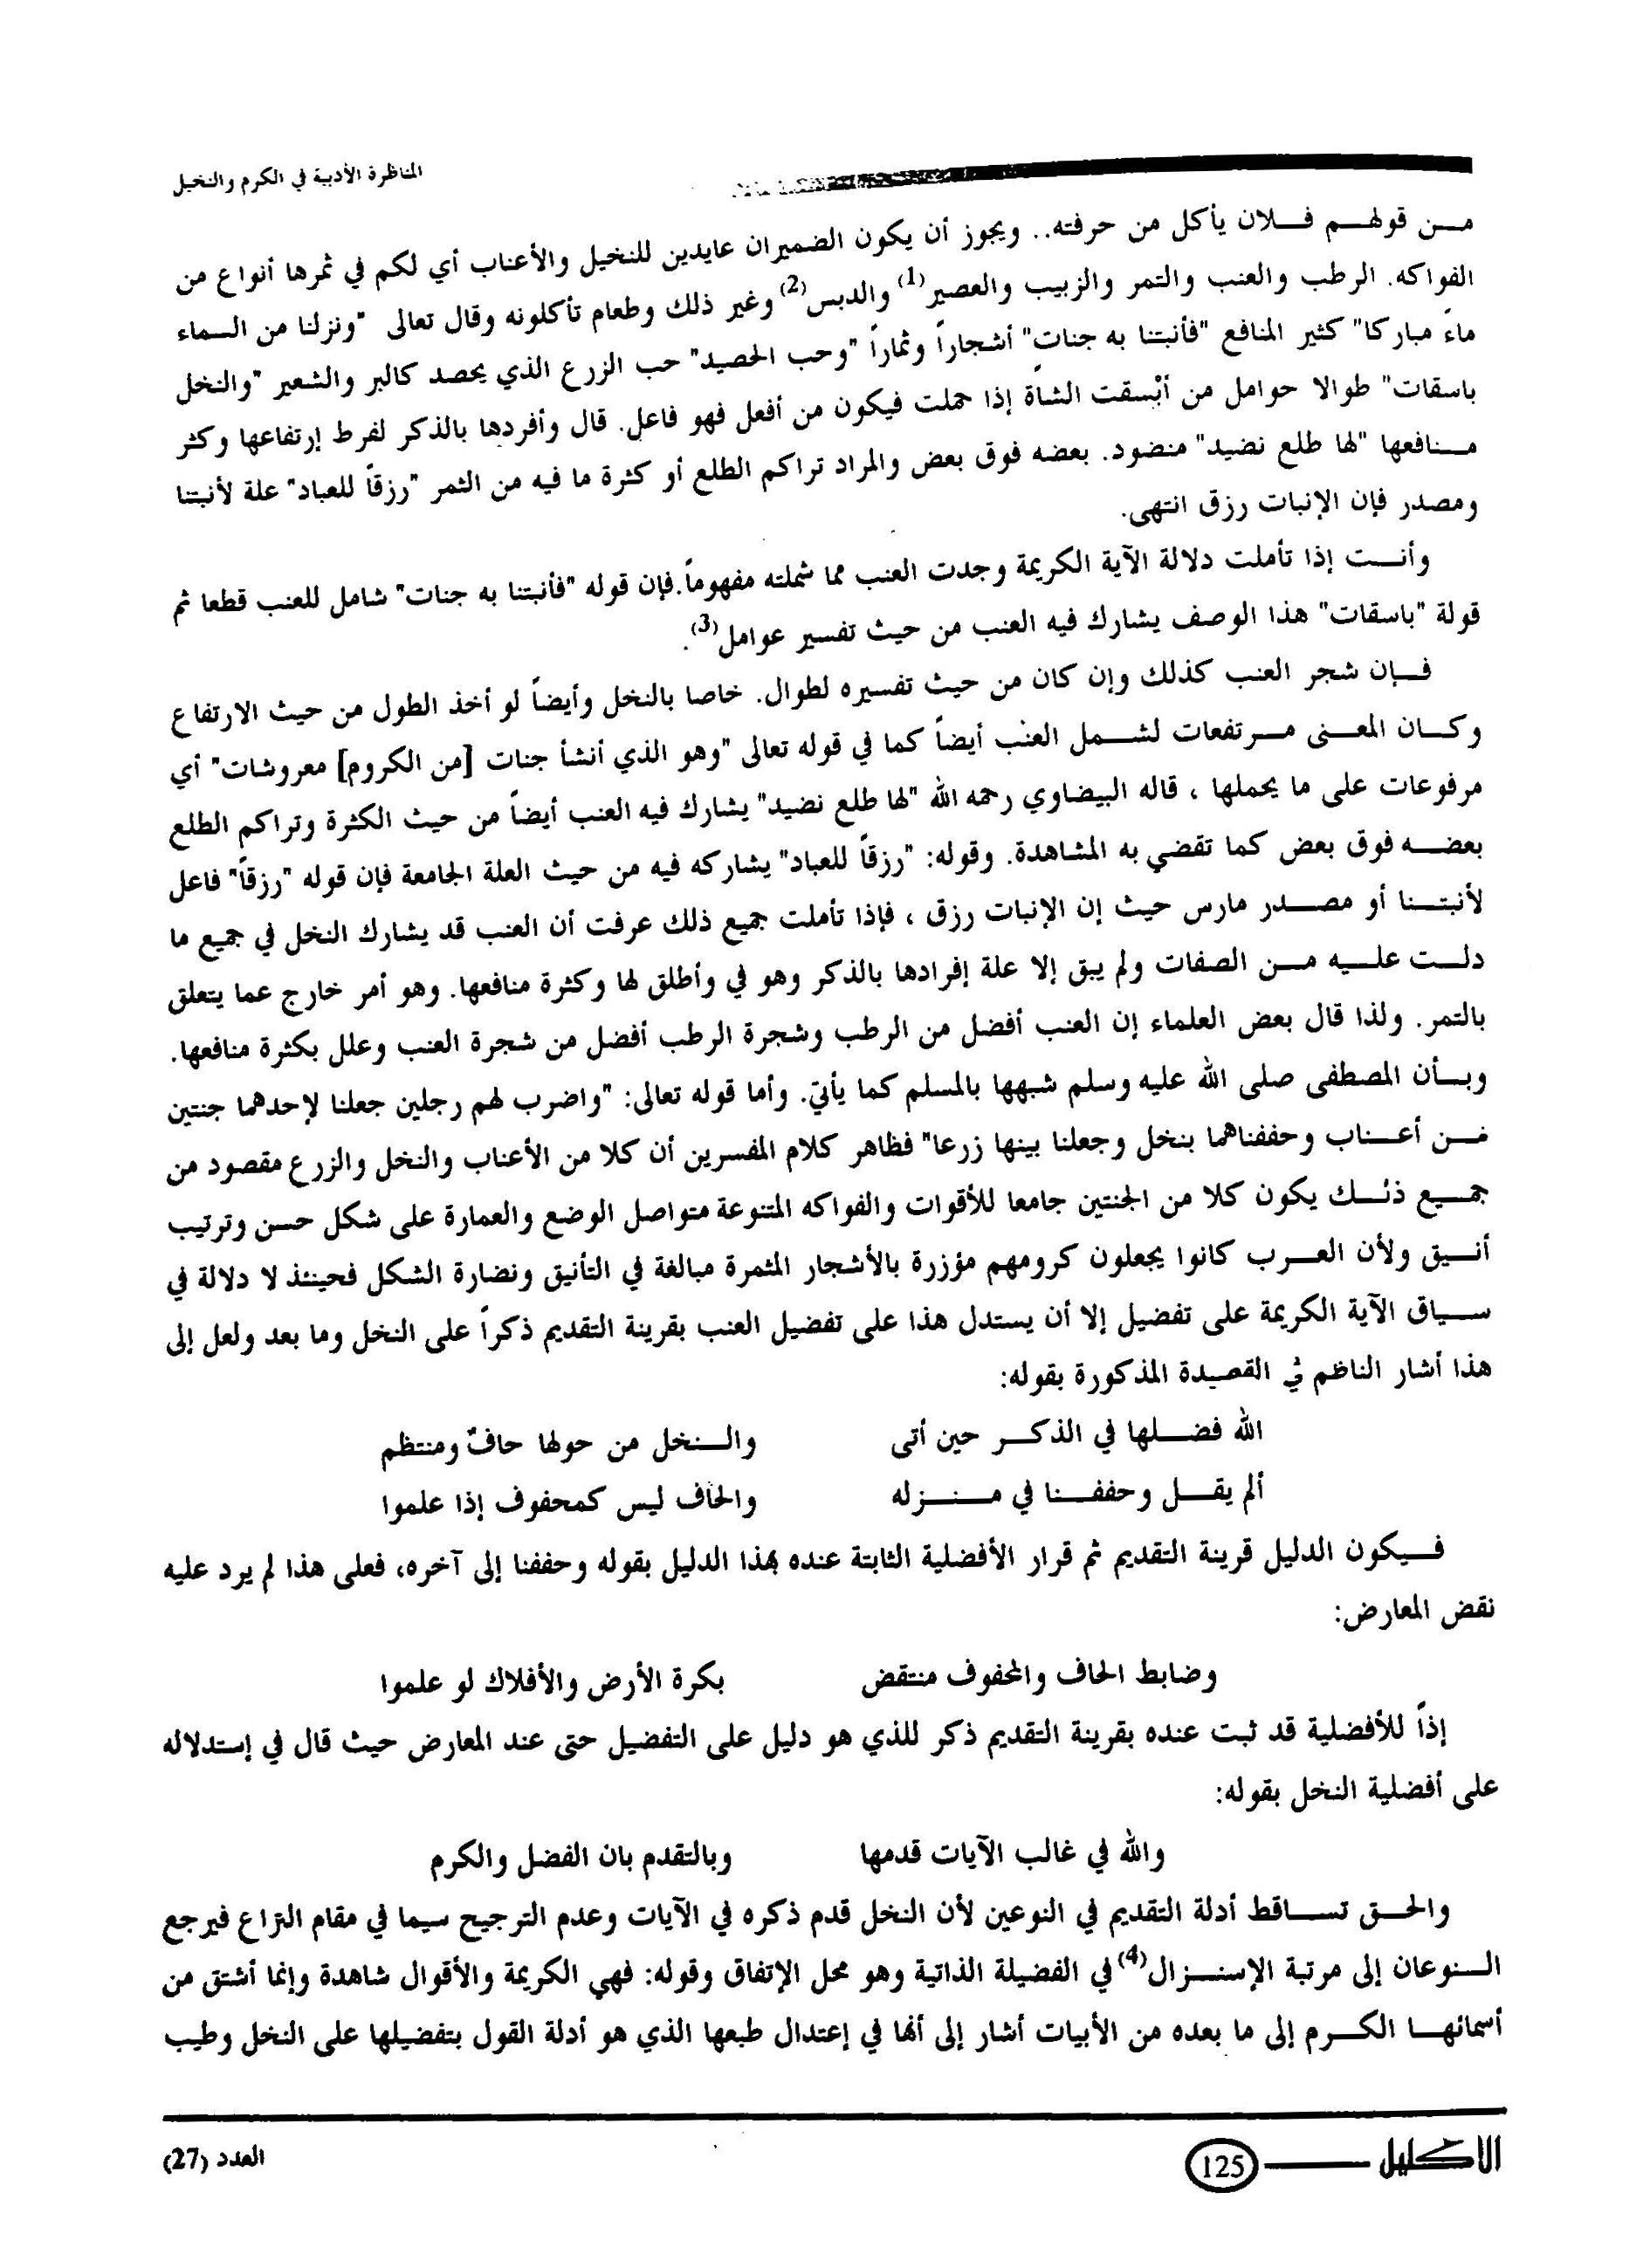 المناظرة الأدبية في الكرم والنخيل
مـن قولهـم فـلان يأكل من حرفته.. ويجوز أن يكون الضميران عايدين للنخيل والأعناب أي لكم في ثمرها أنواع من
الفواكه. الرطب والعنب والتمر والزبيب والعصير(1) والدبس(2) وغير ذلك وطعام تأكلونه وقال تعالى "ونزلنا من السماء
ماءً مباركا" كثير المنافع "فأنبتنا به جنات" أشجاراً وثماراً "وحب الحصيد" حب الزرع الذي يحصد كالبر والشعير "والنخل
باسقات" طوالا حوامل من أبْسقت الشاة إذا حملت فيكون من أفعل فهو فاعل. قال وأفردها بالذكر لفرط إرتفاعها وكثر
مـنافعها "لها طلع نضيد" منضود. بعضه فوق بعض والمراد تراكم الطلع أو كثرة ما فيه من الثمر "رزقاً للعباد" علة لأنبتنا
ومصدر فإن الإنبات رزق انتهى.
وأنـت إذا تأملت دلالة الآية الكريمة وجدت العنب مما شملته مفهوماً.فإن قوله "فأنبتنا به جنات" شامل للعنب قطعا ثم
قولة "باسقات" هذا الوصف يشارك فيه العنب من حيث تفسير عوامل(3).
فـإن شجر العنب كذلك وإن كان من حيث تفسيره لطوال. خاصا بالنخل وأيضاً لو أخذ الطول من حيث الارتفاع
وكـان المعـنى مـرتفعات لشـمل العنب أيضاً كما في قوله تعالى "وهو الذي أنشأ جنات [من الكروم] معروشات" أي
مرفوعات على ما يحملها ، قاله البيضاوي رحمه الله "لها طلع نضيد" يشارك فيه العنب أيضاً من حيث الكثرة وتراكم الطلع
بعضـه فوق بعض كما تقضي به المشاهدة. وقوله: "رزقاً للعباد" يشاركه فيه من حيث العلة الجامعة فإن قوله "رزقاً" فاعل
لأنبتـنا أو مصـدر مارس حيث إن الإنبات رزق ، فإذا تأملت جميع ذلك عرفت أن العنب قد يشارك النخل في جميع ما
دلـت علـيه مـن الصفات ولم يبق إلا علة إفرادها بالذكر وهو في وأطلق لها وكثرة منافعها. وهو أمر خارج عما يتعلق
بالتمر. ولذا قال بعض العلماء إن العنب أفضل من الرطب وشجرة الرطب أفضل من شجرة العنب وعلل بكثرة منافعها.
وبـأن المصطفى صلى الله عليه وسلم شبهها بالمسلم كما يأتي. وأما قوله تعالى: "واضرب لهم رجلين جعلنا لإحدهما جنتين
مـن أعـناب وحففناهما بنخل وجعلنا بينها زرعا" فظاهر كلام المفسرين أن كلا من الأعناب والنخل والزرع مقصود من
جمـيع ذلـك يكون كلا من الجنتين جامعا للأقوات والفواكه المتنوعة متواصل الوضع والعمارة على شكل حسن وترتيب
أنـيق ولأن العـرب كانوا يجعلون كرومهم مؤزرة بالأشجار المثمرة مبالغة في التأنيق ونضارة الشكل فحينئذ لا دلالة في
سـياق الآية الكريمة على تفضيل إلا أن يستدل هذا على تفضيل العنب بقرينة التقديم ذكراً على النخل وما بعد ولعل إلى
هذا أشار الناظم في القصيدة المذكورة بقوله:
الله فضـلها في الذكـر حين أتى والـنخل من حولها حافٌ ومنتظم
ألم يقـل وحففـنا في مـنـزله والحاف ليس كمحفوف إذا علموا
فـيكون الدليل قرينة التقديم ثم قرار الأفضلية الثابتة عنده بهذا الدليل بقوله وحففنا إلى آخره، فعلى هذا لم يرد عليه
نقض المعارض:
وضابط الحاف والمحفوف منتقض بكرة الأرض والأفلاك لو علموا
إذاً للأفضلية قد ثبت عنده بقرينة التقديم ذكر للذي هو دليل على التفضيل حتى عند المعارض حيث قال في إستدلاله
على أفضلية النخل بقوله:
والله في غالب الآيات قدمها وبالتقدم بان الفضل والكرم
والحـق تسـاقط أدلة التقديم في النوعين لأن النخل قدم ذكره في الآيات وعدم الترجيح سيما في مقام النزاع فيرجع
الـنوعان إلى مرتبة الإسـتـزال(4) في الفضيلة الذاتية وهو محل الإتفاق وقوله: فهي الكريمة والأقوال شاهدة وإنما أشتق من
أسمائهـا الكـرم إلى ما بعده من الأبيات أشار إلى أنها في إعتدال طبعها الذي هو أدلة القول بتفضيلها على النخل وطيب
الاكليل 125 العدد (27)